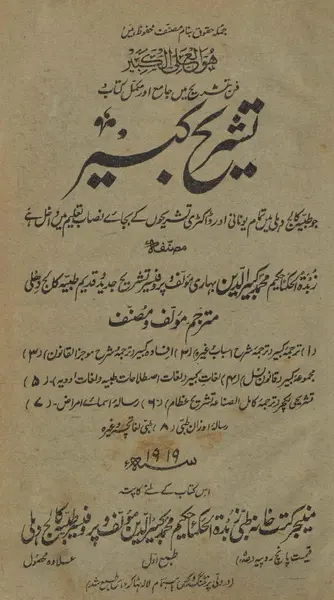 جملہ حقوق بنام مصنف محفوظ ہیں
ھوالعلی الکبیر
فن تشریح میں جامع اور مکمل کتاب
تشریح کبیر
جو طبیہ کالج دہلی میں تمام یونانی اور ڈاکٹری تشریحوں کے بجائے نصاب تعلیم میں داخل ہے
مصنفہ
زبدۃ الحکما حکیم محمد کبیر الدین بہاری مؤلف پروفیسر تشریح جدید و قدیم طبیہ کالج دہلی
مترجم مؤلف و مصنف
(۱) ترجمہ کبیر (ترجمہ شرح اسباب وغیرہ) (۲) افادہ کبیر (ترجمہ شرح موجز القانون) (۳)
مجموعہ کبیر (قانون نسل) (۴) لغات کبیر (لغات اصطلاحات طبیہ و لغات ادویہ) - (۵)
تشریحی لیکچر (ترجمہ کامل الصناعہ تشریح عظام) (۶) رسالہ اسمائے امراض - (۷)
رسالہ اوزان طبی (۸) طبی وغیرہ
۱۹۱۹ سنہ
اس کتاب کے ملنے کا پتہ
منیجر کتب خانہ طبی زبدۃ الحکما حکیم محمد کبیر الدین مؤلف و پروفیسر طبیہ کالج دہلی
قیمت پانچ روپیہ طبع اول علاوہ محصول
پرنٹنگ ورکس باہتمام لالہ طبع شد